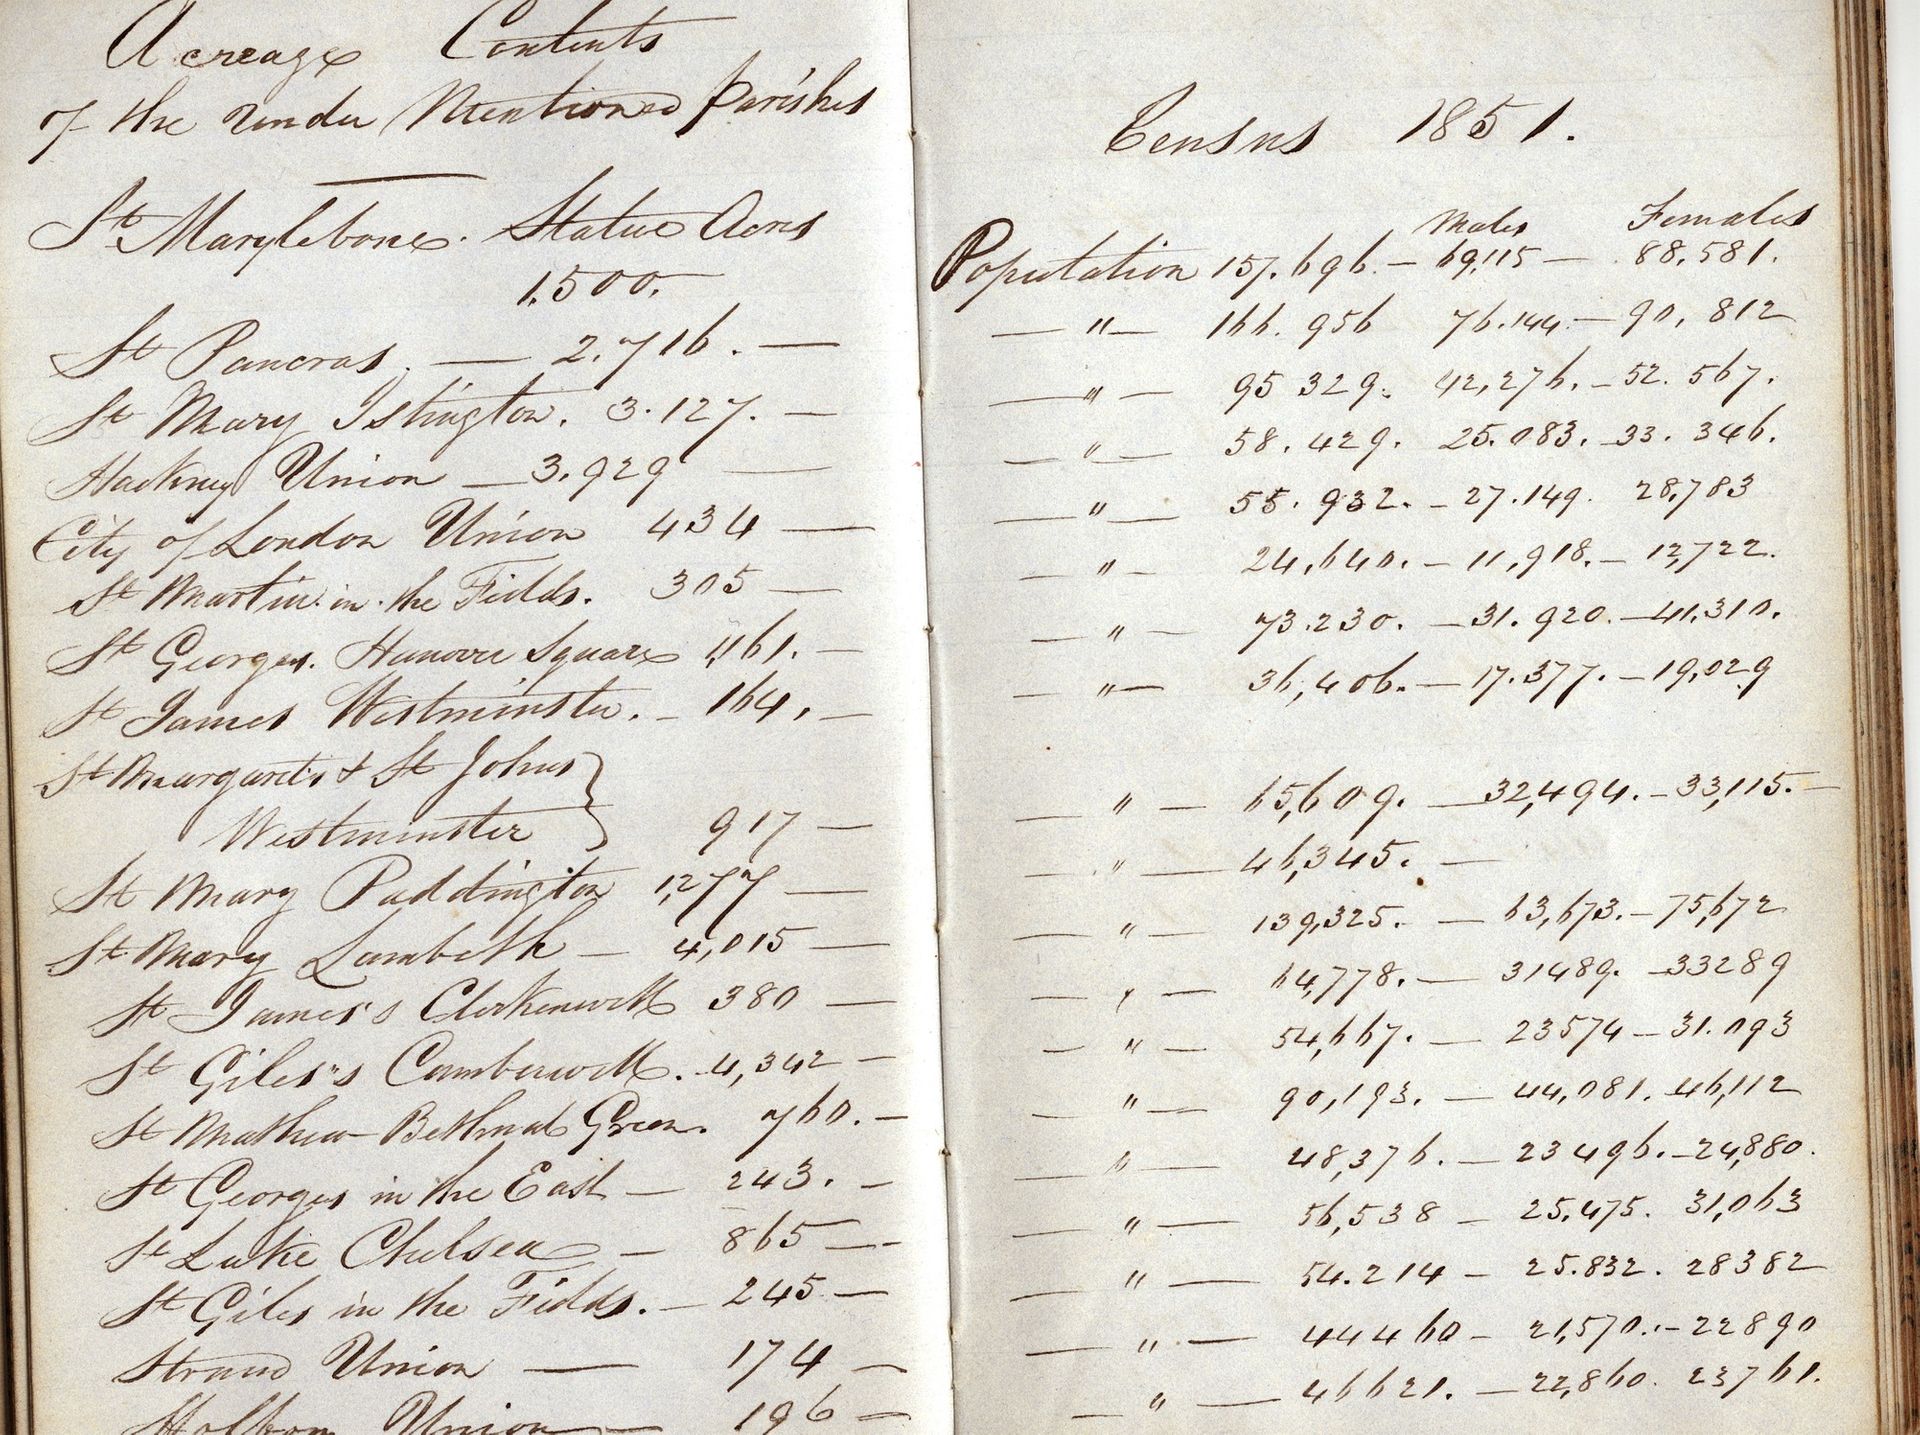 Acreage Contents
of the under Mentioned Parishes
St Marylebone. Statue Acres
1,500.
St Pancras. — 2.716. —
St Mary Islington. 3.127. —
Hackney Union — 3.929 —
City of London Union 434 —
St Martin in the Fields. 305 —
St Georges. Hanover Square 1,161. —
St James Westminster. — 164. —
St Margarets & St Johns }
Westminster } 917 —
St Mary Paddington 1,277 —
St Mary Lambeth — 4,015 —
St James's Clerkenwell 380 —
St Giles's Camberwell. 4,342 —
St Mathew Bethnal Green. 760. —
St Georges in the East — 243. —
St Luke Chelsea — 865 —
St Giles in the Fields. — 245 —
Strand Union — 174 —
Holborn Union — 196 —
Census 1851.
Males Females
Population 157.696. — 69,115 — 88,581.
— " — 166.956 76.144 — 90,812
— " — 95 329. 42,276. — 52.567.
— " — 58.429. 25.083. — 33.346.
— " — 55.932. — 27.149. 28,783
— " — 24,640. — 11,918. — 12,722.
— " — 73.230. — 31.920. — 41,310.
— " — 36,406. — 17.377. — 19,029
— " — 65,609. — 32,494. — 33,115. —
— " — 46,345. —
— " — 139,325. — 63,673. — 75,672
— " — 64,778. — 31489. — 33289
— " — 54,667. — 23574 — 31.093
— " — 90,193. — 44,081. 46,112
— " — 48,376. — 23496. — 24,880.
— " — 56,538 — 25,475. 31,063
— " — 54.214 — 25.832. 28382
— " — 44460 — 21,570. — 22890
— " — 46621. — 22,860. 23761.